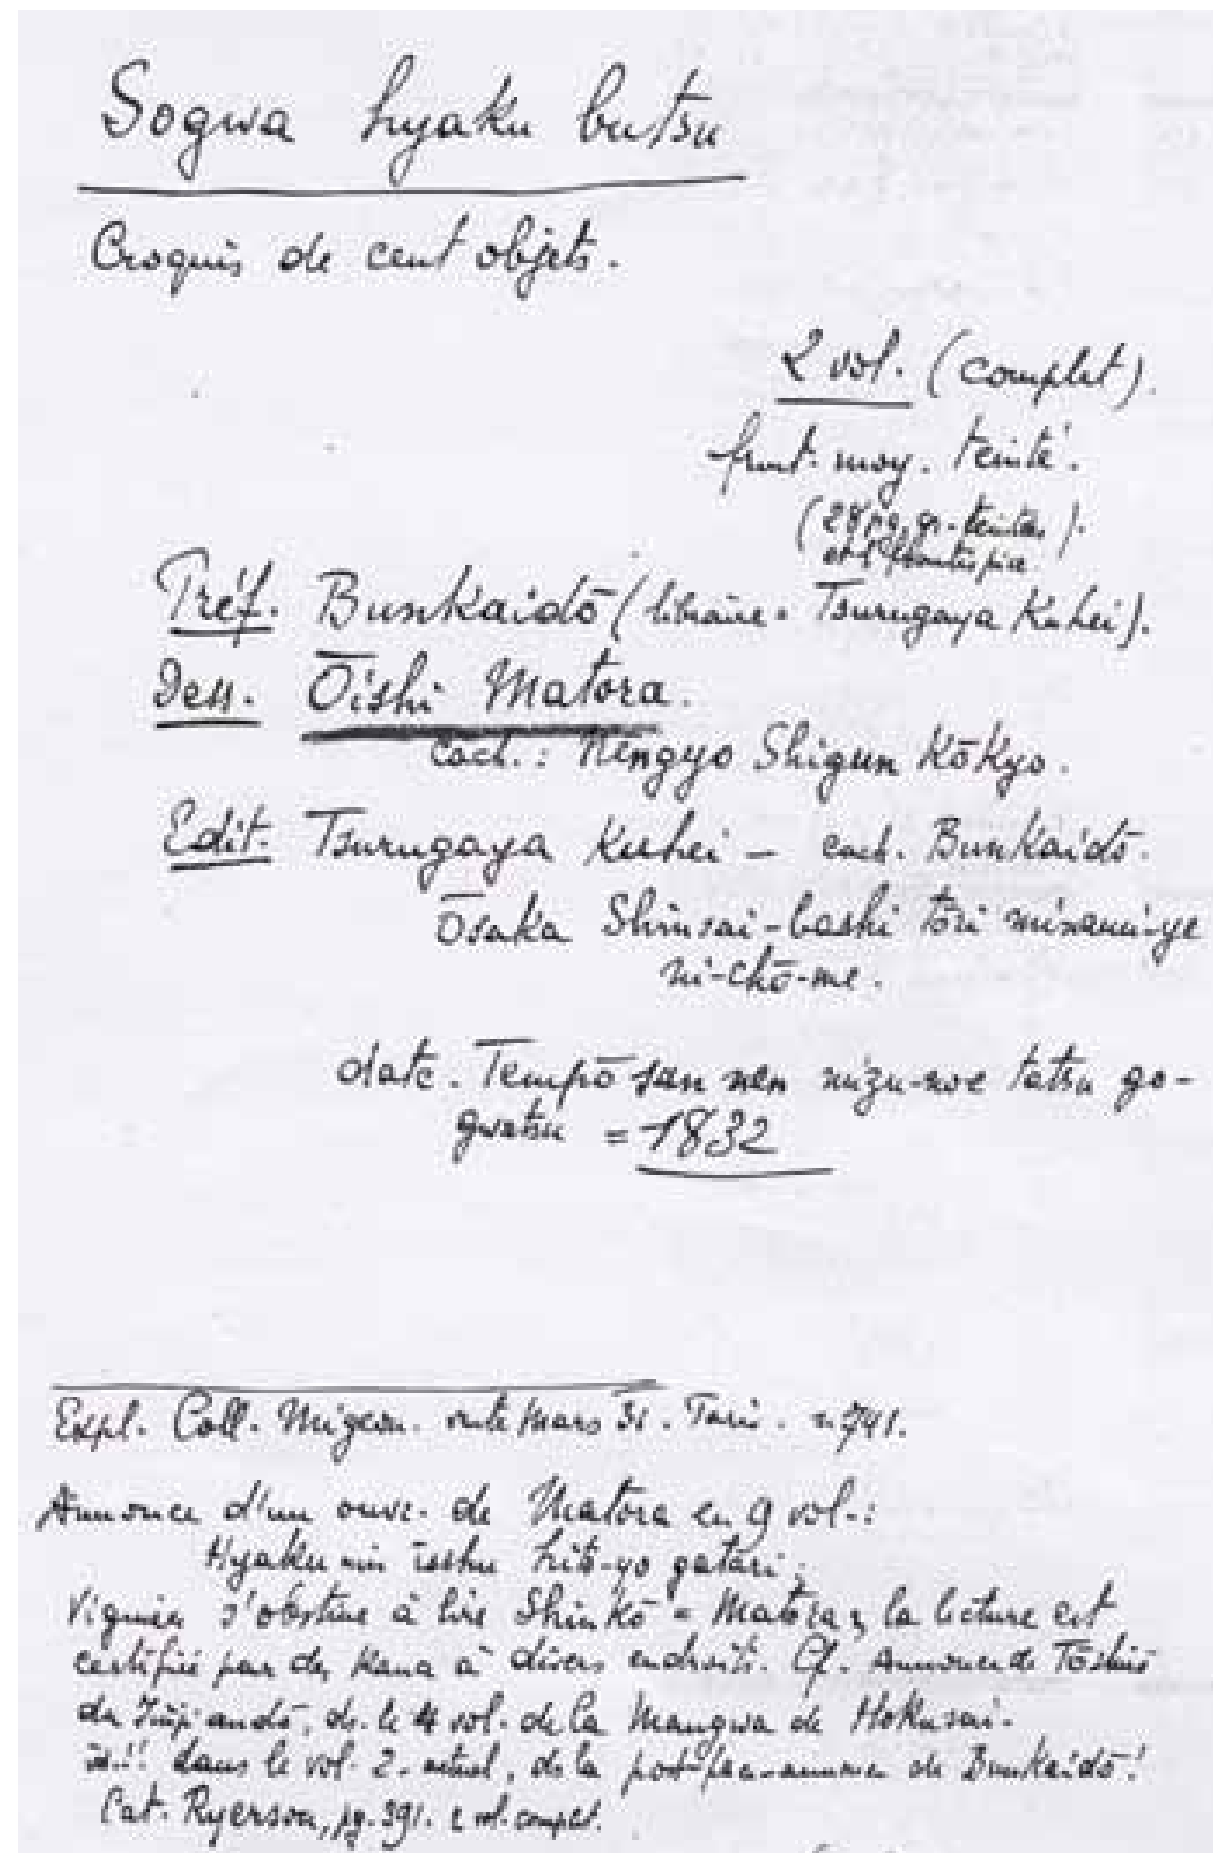 Sogwa hyaku butsu
Croquis de cent objets.
2 vol. (complet).
moy. teinté.
(28 pg. gr. teintées).
et 1 frontispice
Préf. Bunkaidō (libraire = Tsurugaya Kuhei).
Dess. Ōishi Matora.
cach. : Nengyo Shigun Kōkyo.
Edit. Tsurugaya Kuhei – cach. Bunkaidō.
Ōsaka Shinsai-bashi tōri minami-ye
ni-chō-me.
date. Tempō san nen mizu-noe tatsu go-
gwatsu = 1832
Expl. Coll. Migeon. vente Mars 31. Paris. n. 741.
Annonce d'un ouvr. de Matora en 9 vol.:
Hyaku nin isshu hito-yo gatari;
Vignier s'obstine à lire Shinkō = Matora, la lecture est
certifiée par des Kana à divers endroits. Cf. Annonce de Tōshūs
du ds. le 4 vol. de la Mangwa de Hokusai.
dans le vol. 2. ds la de Bunkaidō!
Cat. Ryerson, pg. 391. 2 vol. complet.